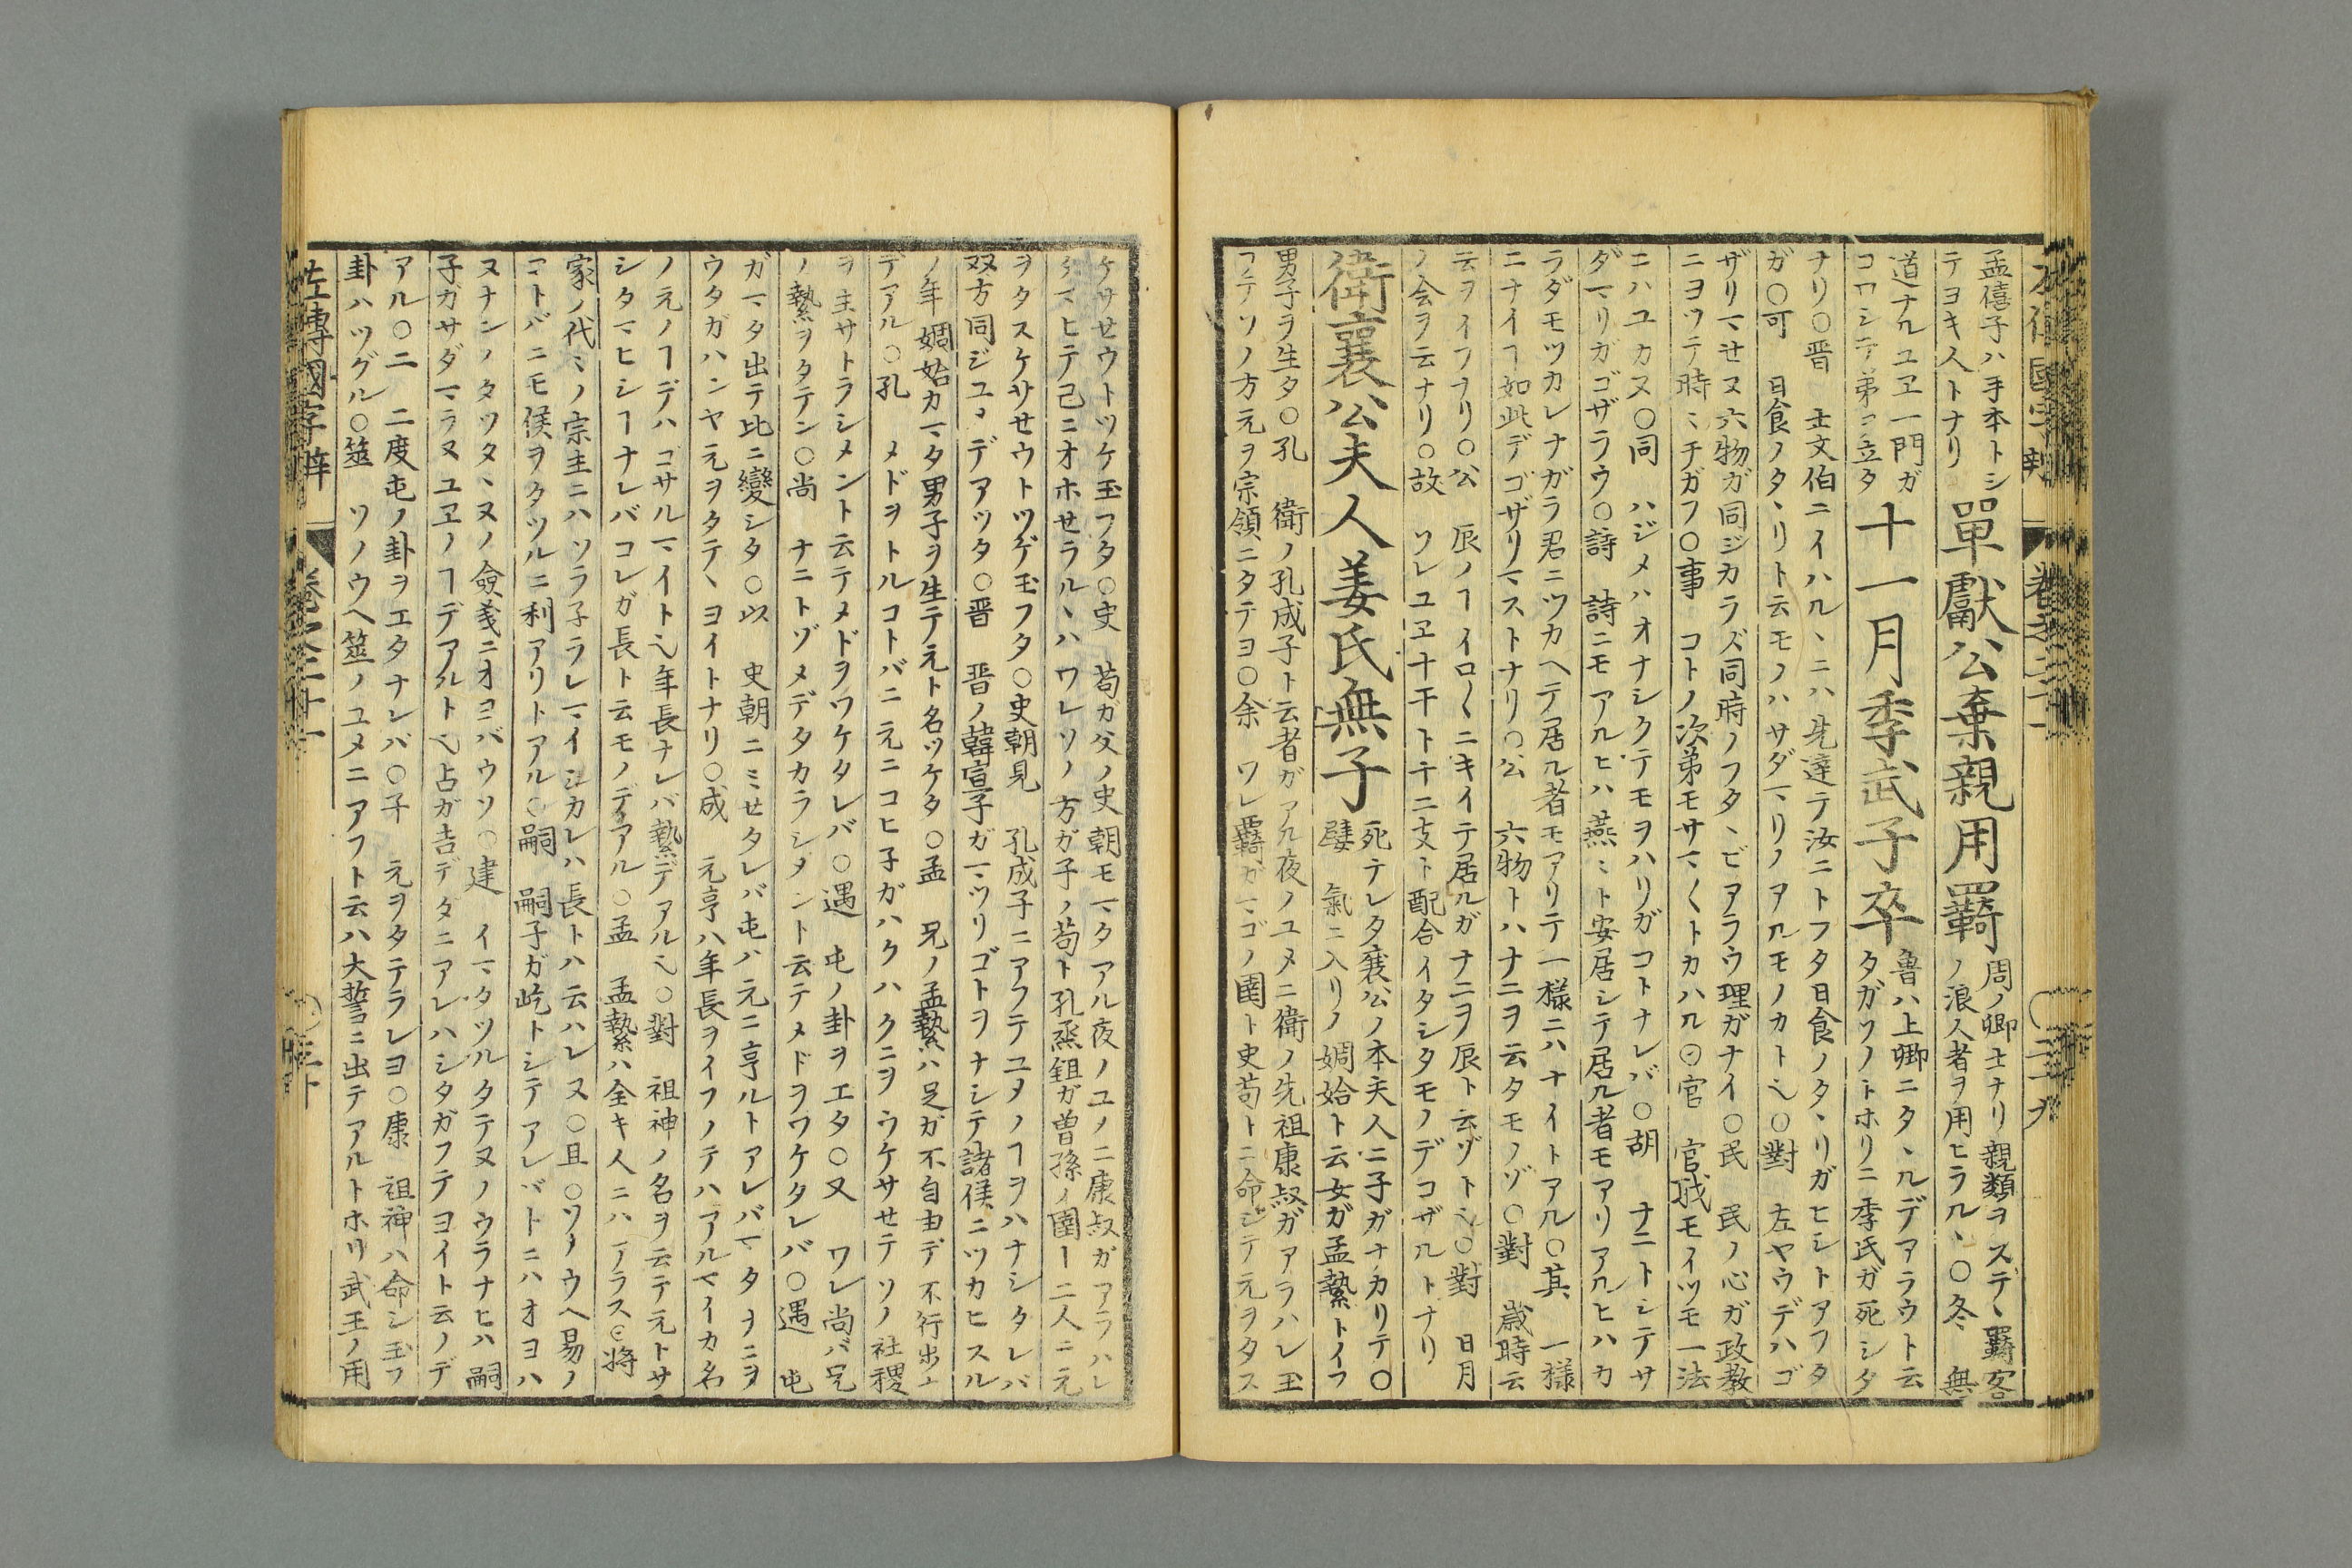 孟僖子ハ手本トシ
テヨキ人トナリ
單獻公棄親用羈
周ノ卿士ナリ親類ヲステヽ羈客
ノ浪人者ヲ用ヒラルヽ○冬 無
道ナルユヱ一門ガ
コロシテ弟ヲ立タ
十一月季武子卒
魯ハ上卿ニタヽルデアラウト云
タガソノトホリニ季氏ガ死シタ
ナリ○晋 士文伯ニイハルヽニハ先達テ汝ニトフタ日食ノタヽリガヒシトアフタ
ガ○可 日食ノタヽリト云モノハサダマリノアルモノカト也○對 左ヤウデハゴ
ザリマセヌ六物ガ同ジカラズ同時ノフタヽビアラウ理ガナイ○民 民ノ心ガ政教
ニヨツテ時ミチガフ○事 コトノ次第モサマ〱トカハル○官 官職モイツモ一法
ニハユカヌ○同 ハジメハオナシクテモヲハリガコトナレバ○胡 ナニトシテサ
ダマリガゴザラウ○詩 詩ニモアルヒハ燕ミト安居シテ居ル者モアリアルヒハカ
ラダモツカレナガラ君ニツカヘテ居ル者モアリテ一様ニハナイトアル○其 一様
ニナイヿ如此デゴザリマストナリ○公 六物トハナニヲ云タモノゾ○對 歳時云
云ヲイフナリ○公 辰ノヿイロ〱ニキイテ居ルガナニヲ辰ト云ゾト也○對 日月
ノ会ヲ云ナリ○故 ソレユヱ十干ト十二支ト配合イタシタモノデコザルトナリ
衛襄公夫人姜氏無子
死テレタ襄公ノ本夫人ニ子ガナカリテ○
嬖 氣ニ入リノ婤姶ト云女ガ孟縶トイフ
男子ヲ生タ○孔 衛ノ孔成子ト云者ガアル夜ノユメニ衛ノ先祖康叔ガアラハレ玉
フテソノ方元ヲ宗領ニタテヨ○余 ワレ羈ガマゴノ圉ト史苟トニ命ジテ元ヲタス
ケサセウトツケ玉フタ○史 苟ガ父ノ史朝モマタアル夜ノユメニ康叔ガアラハレ
タマヒテ己ニオホせラルヽハワレソノ方ガ子ノ苟ト孔烝鉏ガ曽孫ノ圉ト二人ニ元
ヲタスケサせウトツゲ玉フタ○史朝見 孔成子ニアフテユメノヿヲハナシタレバ
双方同ジユメデアツタ○晋 晋ノ韓宣子ガマツリゴトヲナシテ諸侯ニツカヒスル
ノ年婤姶カマタ男子ヲ生テ元ト名ツケタ○孟 兄ノ孟縶ハ足ガ不自由デ不行歩ニ
デアル○孔 メドヲトルコトバニ元ニコヒ子ガハクハクニヲウケサセテソノ社稷
ヲ主サトラシメント云テメドヲワケタレバ○遇 屯ノ卦ヲエタ○又 ワレ尚バ兄
ノ縶ヲタテン○尚 ナニトゾメデタカラシメント云テメドヲワケタレバ○遇 屯
ガマタ出テ比ニ變シタ○以 史朝ニミせタレバ屯ハ元ニ亨ルトアレバマタナニヲ
ウタガハンヤ元ヲタテヽヨイトナリ○成 元亨ハ年長ヲイフノテハアルマイカ名
ノ元ノヿデハゴサルマイト也年長ナレバ縶デアル也○對 祖神ノ名ヲ云テ元トサ
シタマヒシヿナレバコレガ長ト云モノデアル○孟 孟縶ハ全キ人ニハアラス○將
家ノ代ミノ宗主ニハソラ子ラレマイシカレハ長トハ云ハレヌ○且 ○ソノウヘ易ノ
コトバニモ候ヲタツルニ利アリトアル○嗣 嗣子ガ屹トシテアレバトニハオヨハ
ヌナンノタツタヽヌノ僉義ニオヨバウソ○建 イマタツルタテヌノウラナヒハ嗣
子ガサダマラヌユヱノヿデアルト也占ガ吉デダニアレハシタガフテヨイト云ノデ
アル○二 二度屯ノ卦ヲエタナレバ○子 元ヲタテラレヨ○康 祖神ハ命シ玉フ
卦ハツグル○筮 ソノウヘ筮ノユメニアフト云ハ大誓ニ出テアルトホリ武王ノ用
左傳國字辯
巻之二十一